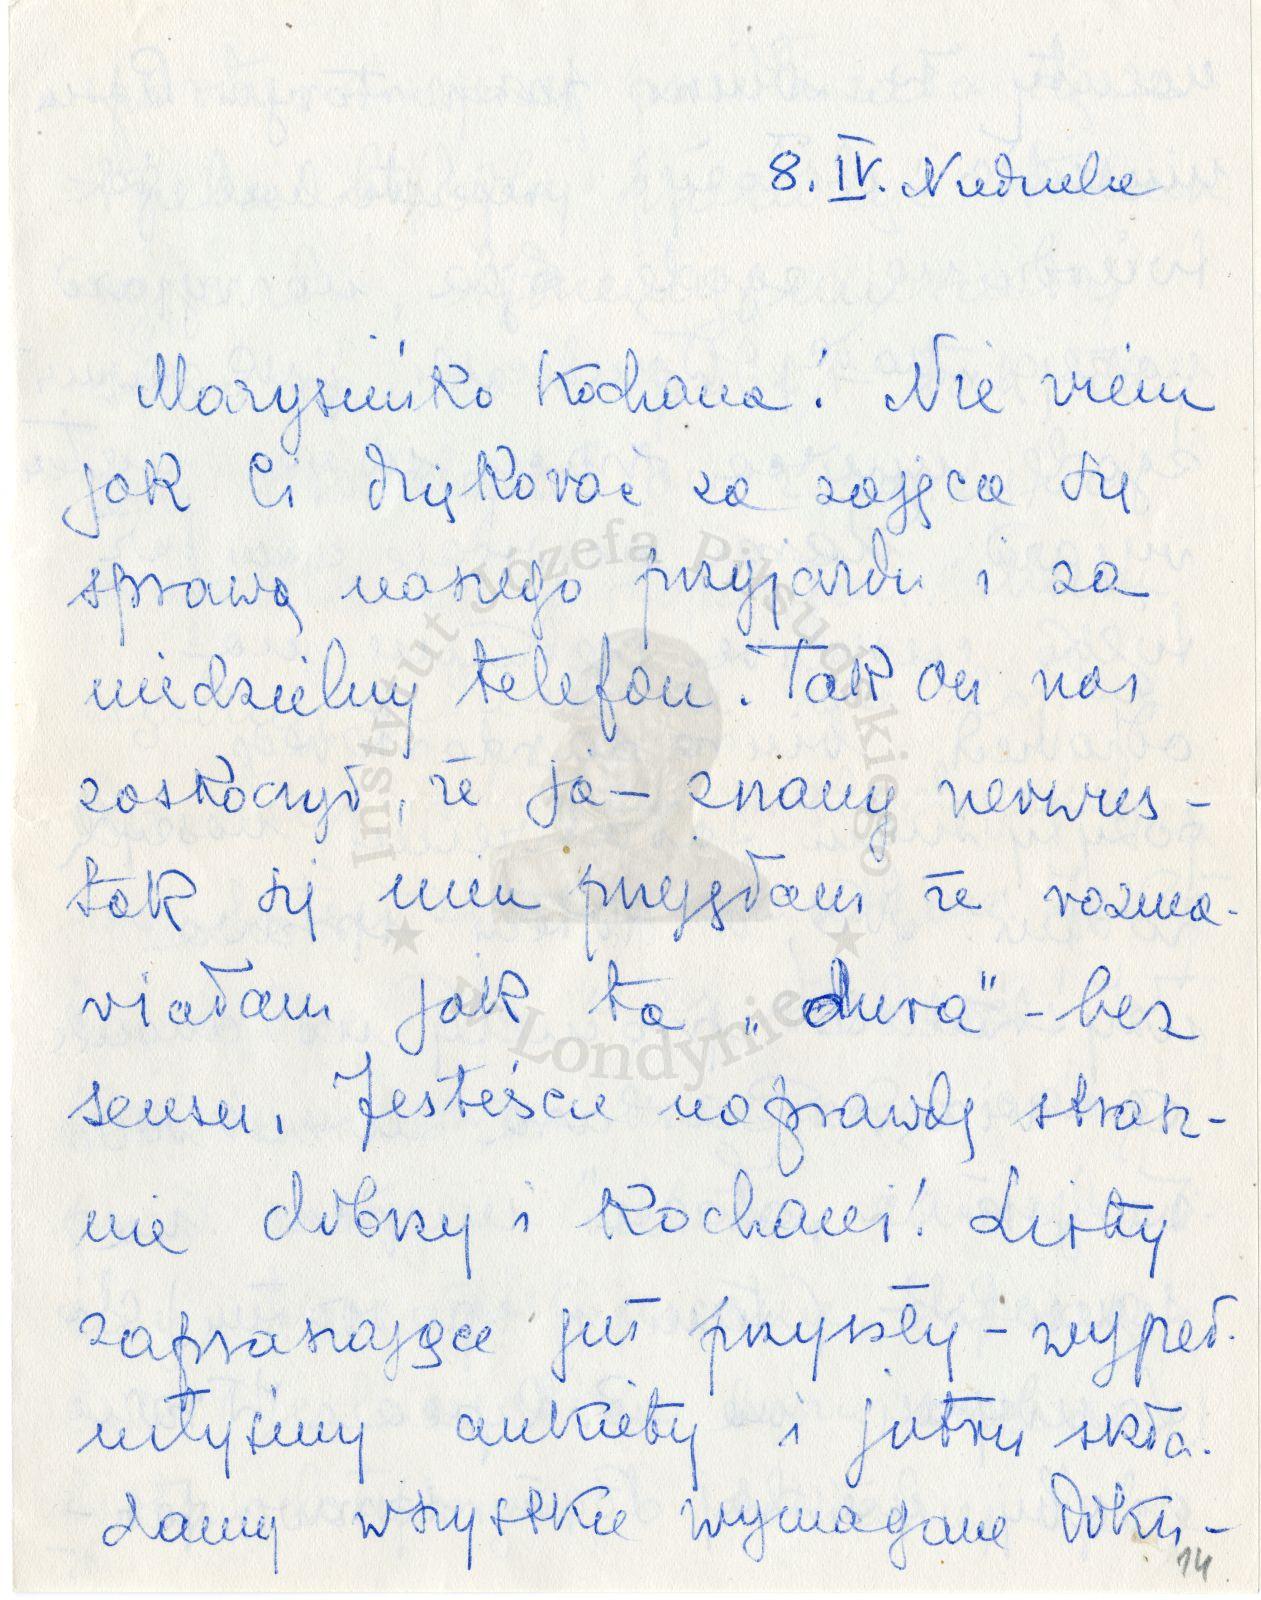 8. IV. Niedziela
Marysieńko Kochana! Nie wiem
jak Ci dziękować za zajęcie się
sprawą naszego przyjazdu i za
niedzielny telefon. Tak on nas
zaskoczył, że ja – znany nerwus –
tak się nim przejęłam że rozma-
wiałam jak ta „dura" – bez
sensu. Jesteście naprawdę strasz-
nie dobrzy i Kochani! Listy
zapraszające już przyszły – wypeł-
niłyśmy ankiety i jutro skła-
damy wszystkie wymagane doku-
14
Instytut Józefa Piłsudskiego
w Londynie